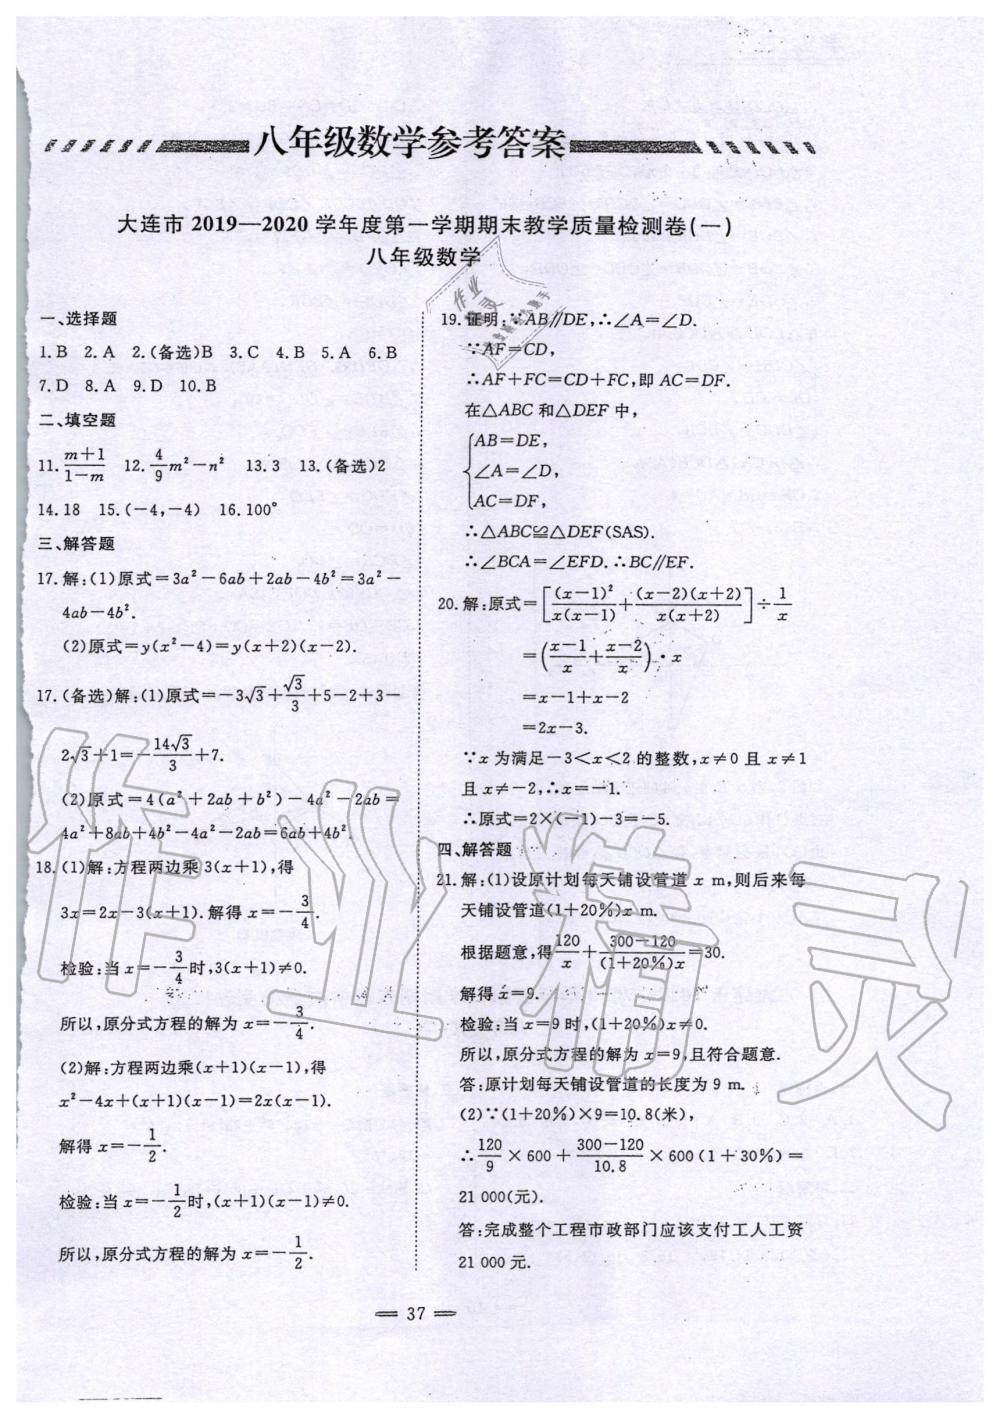 八年级数学参考答案
大连市 2019—2020 学年度第一学期期末教学质量检测卷(一)
八年级数学
一、选择题
1.B 2.A 2.(备选)B 3.C 4.B 5.A 6.B
7.D 8.A 9.D 10.B
二、填空题
11. (m+1)/(1-m) 12. 4/9 m²-n² 13.3 13.(备选)2
14.18 15.(-4,-4) 16.100°
三、解答题
17.解:(1)原式=3a²-6ab+2ab-4b²=3a²-
4ab-4b².
(2)原式=y(x²-4)=y(x+2)(x-2).
17.(备选)解:(1)原式=-3√3+√3/3+5-2+3-
2√3+1=-14√3/3+7.
(2)原式=4(a²+2ab+b²)-4a²-2ab=
4a²+8ab+4b²-4a²-2ab=6ab+4b².
18.(1)解:方程两边乘3(x+1),得
3x=2x-3(x+1).解得 x=-3/4.
检验:当 x=-3/4时,3(x+1)≠0.
所以,原分式方程的解为 x=-3/4.
(2)解:方程两边乘(x+1)(x-1),得
x²-4x+(x+1)(x-1)=2x(x-1).
解得 x=-1/2.
检验:当 x=-1/2时,(x+1)(x-1)≠0.
所以,原分式方程的解为 x=-1/2.
19.证明:∵AB∥DE,∴∠A=∠D.
∵AF=CD,
∴AF+FC=CD+FC,即 AC=DF.
在△ABC 和△DEF 中,
{AB=DE,
∠A=∠D,
AC=DF,
∴△ABC≌△DEF(SAS).
∴∠BCA=∠EFD.∴BC∥EF.
20.解:原式=[(x-1)²/x(x-1)+(x-2)(x+2)/x(x+2)]÷1/x
=((x-1)/x+(x-2)/x)·x
=x-1+x-2
=2x-3.
∵x 为满足-3<x<2的整数,x≠0 且 x≠1
且 x≠-2,∴x=-1.
∴原式=2×(-1)-3=-5.
四、解答题
21.解:(1)设原计划每天铺设管道 x m,则后来每
天铺设管道(1+20%)x m.
根据题意,得120/x+(300-120)/(1+20%)x=30.
解得 x=9.
检验:当 x=9时,(1+20%)x≠0.
所以,原分式方程的解为 x=9,且符合题意.
答:原计划每天铺设管道的长度为 9 m.
(2)∵(1+20%)×9=10.8(米),
∴120/9×600+(300-120)/10.8×600(1+30%)=
21 000(元).
答:完成整个工程市政部门应该支付工人工资
21 000 元.
37
作业精灵